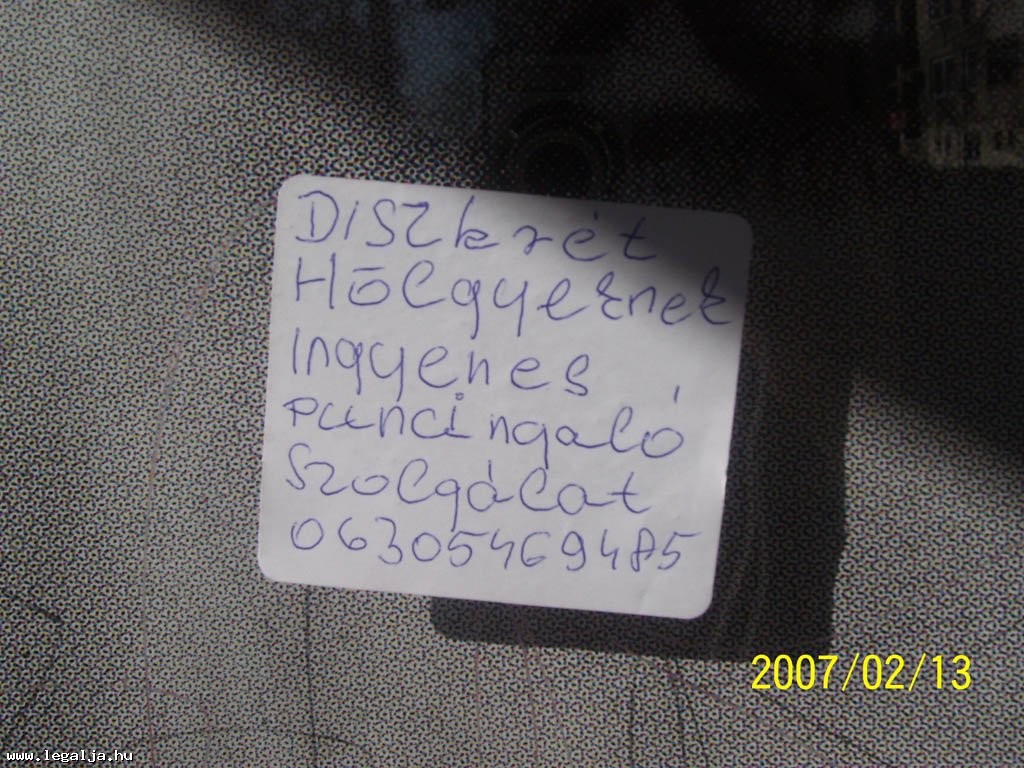 DISZkrét
Hölgyeknek
Ingyenes
puncingaló
Szolgálat
06305469485
2007/02/13
www.legalja.hu